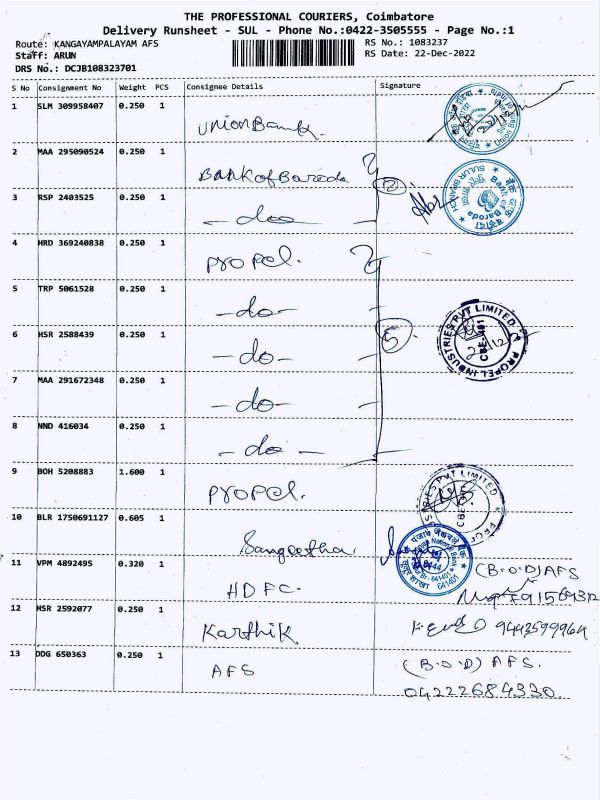 THE PROFESSIONAL COURIERS, Coimbatore
Delivery Runsheet - SUL - Phone No.:0422-3505555 - Page No.:1
Route: KANGAYAMPALAYAM AFS
Staff: ARUN
DRS No.: DCJB108323701
RS No.: 1083237
RS Date: 22-Dec-2022
S No Consignment No Weight PCS Consignee Details Signature
1 SLM 309958407 0.250 1 Union Bank.
2 MAA 295090524 0.250 1 Bank of Baroda
②
3 RSP 2403525 0.250 1 - do -
4 HRD 369240838 0.250 1 Propel.
5 TRP 5061528 0.250 1 - do -
⑤
6 HSR 2588439 0.250 1 - do -
7 MAA 291672348 0.250 1 - do -
8 NND 416034 0.250 1 - do -
PROPEL INDUSTRIES PVT LIMITED
9 BOH 5208883 1.600 1 Propel.
10 BLR 1750691127 0.605 1 Sangeetha
11 VPM 4892495 0.320 1 HDFC. (B.O.D) AFS
12 HSR 2592077 0.250 1 Karthik
13 DDG 650363 0.250 1 AFS (B.O.D) AFS.
04222684330.